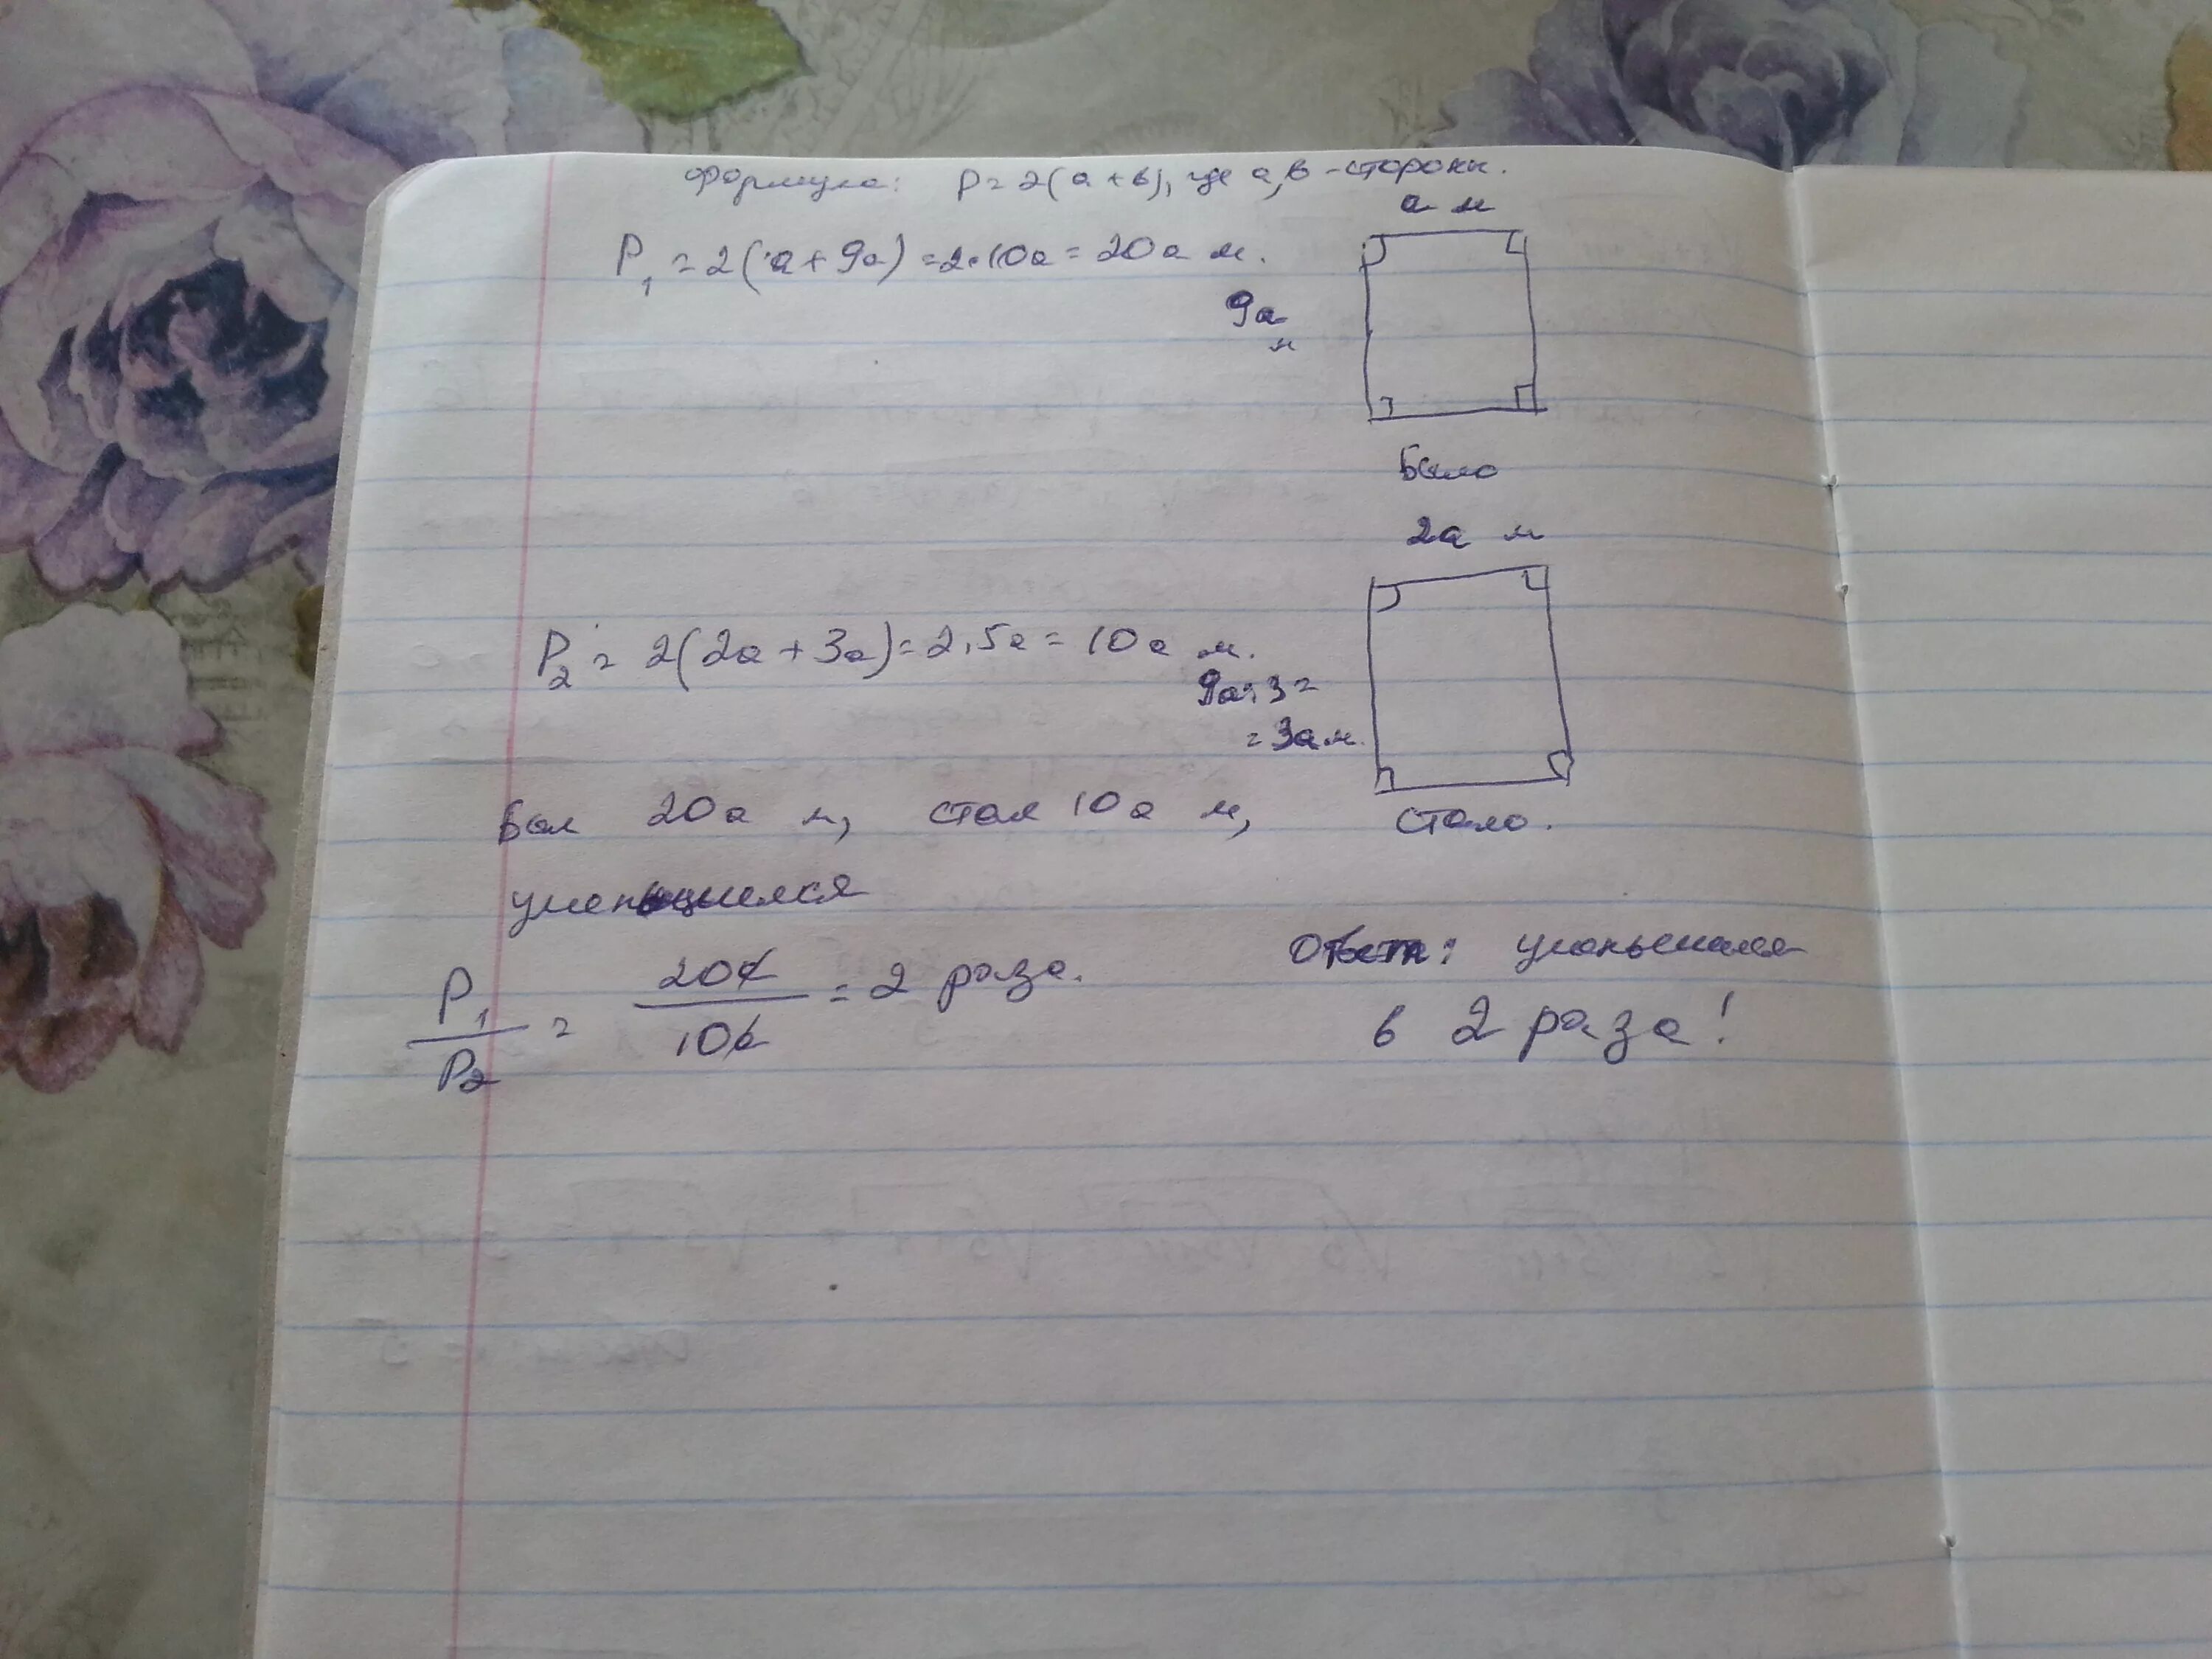 Формула: P = 2(a + в), где a, в - стороны.
a м
P₁ = 2(a + 9a) = 2·10a = 20a м.
9a
м
Было
2a м
P₂ = 2(2a + 3a) = 2·5a = 10a м.
9a:3=
=3a м.
Был 20a м, стал 10a м,
стало.
уменьшился
P₁/P₂ = 20a/10a = 2 раза.
Ответ: уменьшился
в 2 раза!